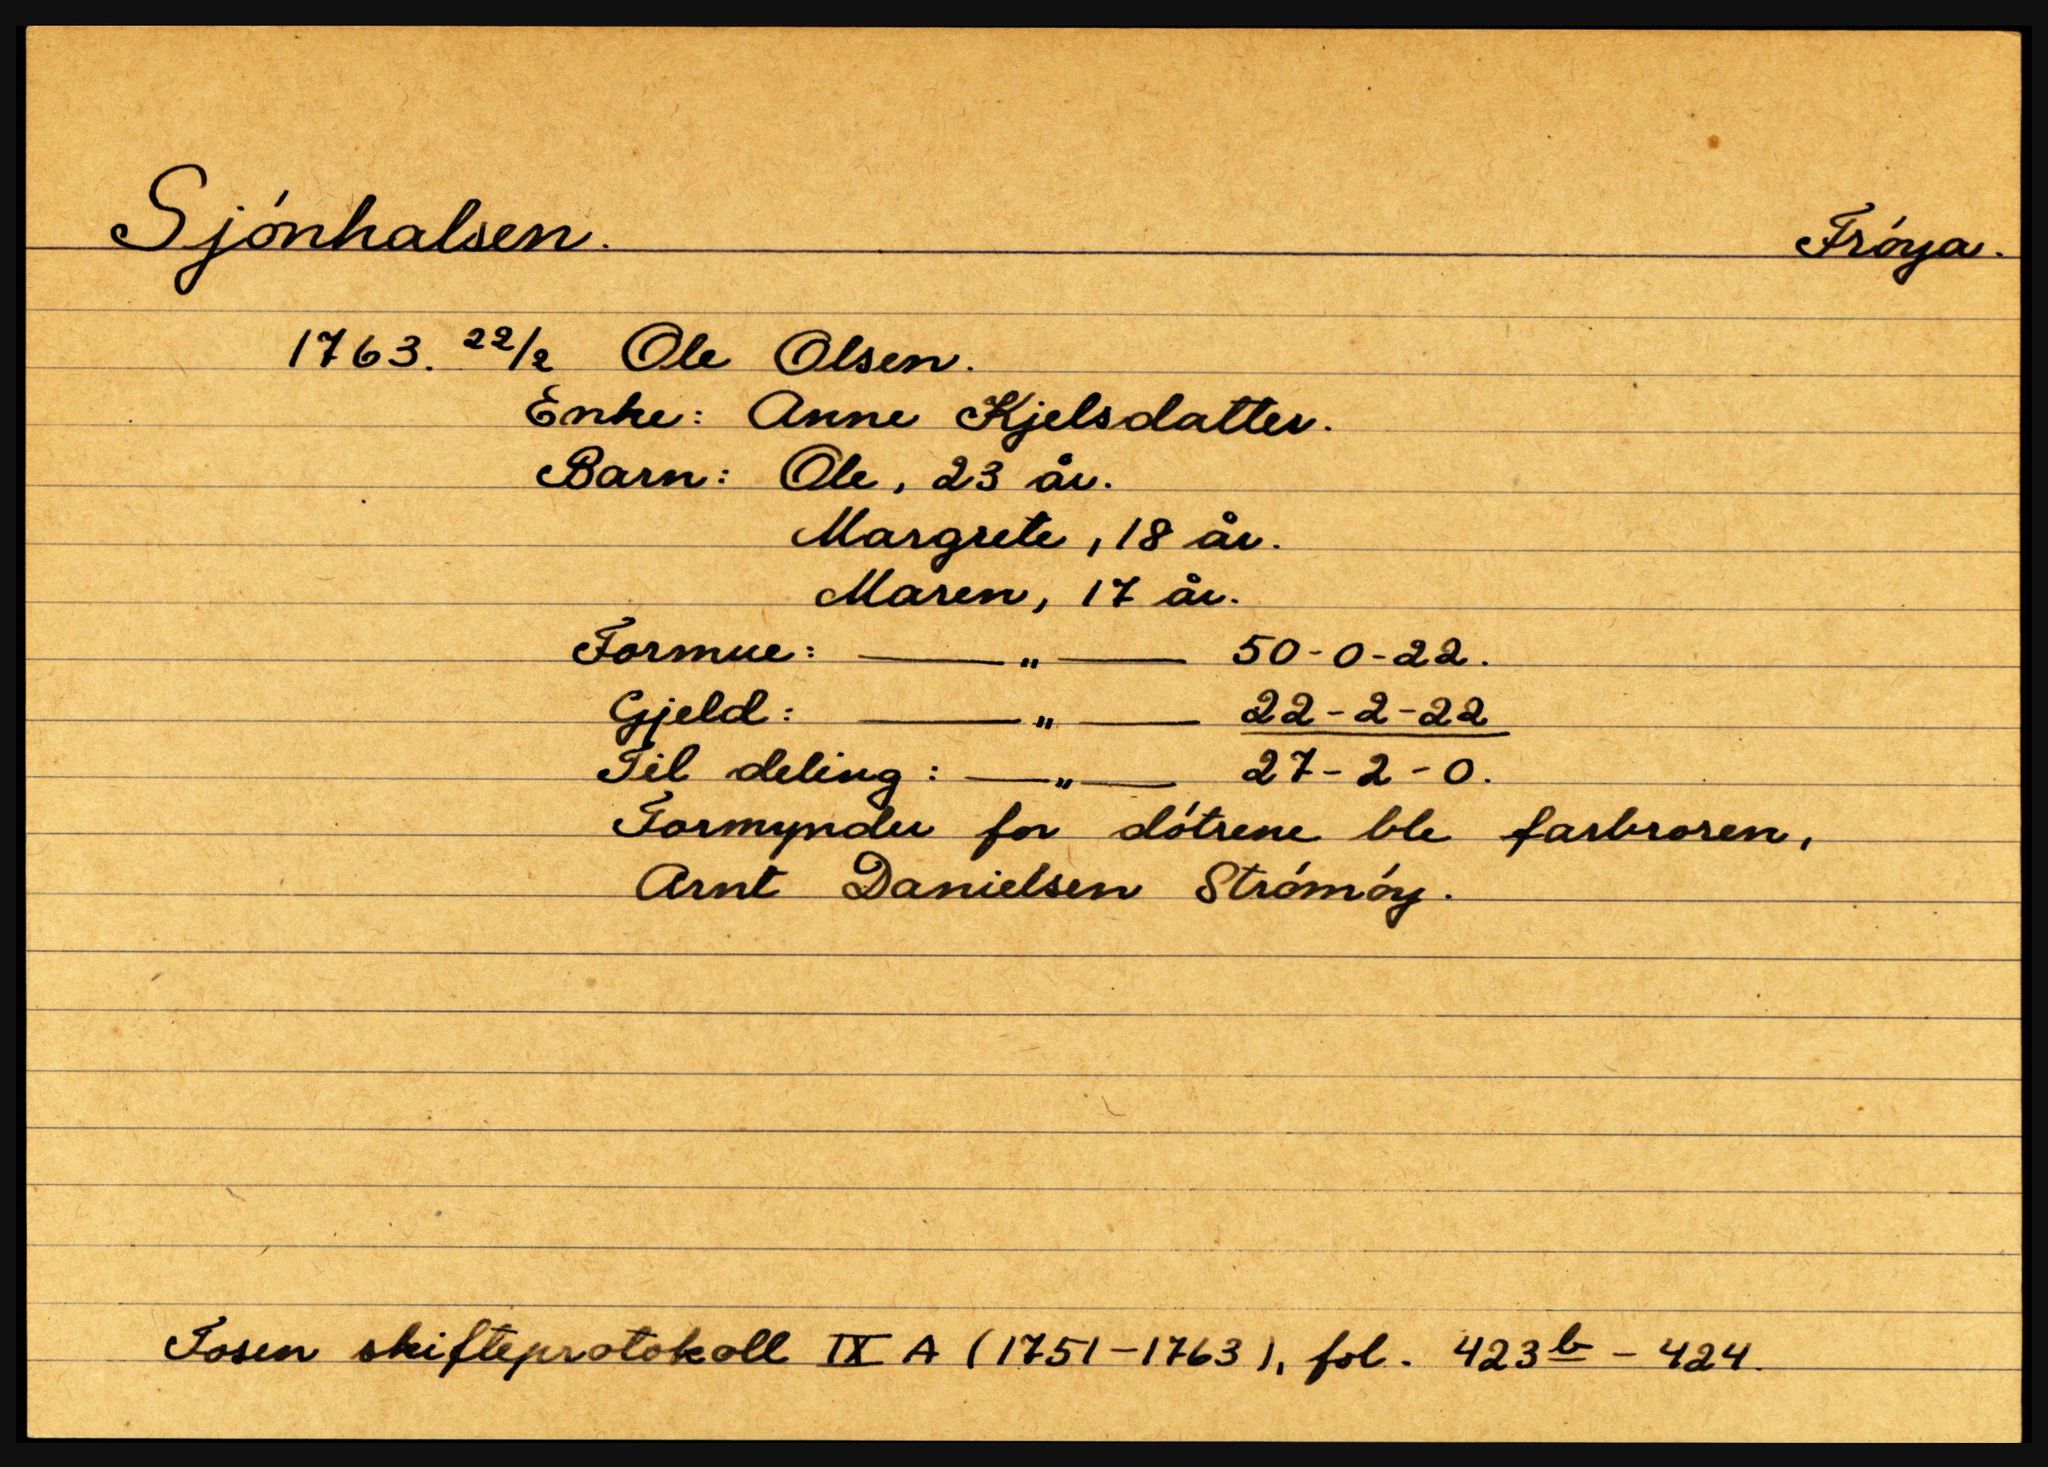 Sjónhalsen. Fróya.
1763. 22/2 Ole Olsen.
Enke: Anne Kjelsdatter.
Barn: Ole, 23 år.
Margrete, 18 år.
Maren, 17 år.
Formue: —„— 50-0-22.
Gjeld: —„— 22-2-22
Til deling: —„— 27-2-0.
Formynder for dótrene ble farbroren,
Arnt Danielsen Strómóy.
Fosen skifteprotokoll IX A (1751-1763), fol. 423b - 424.